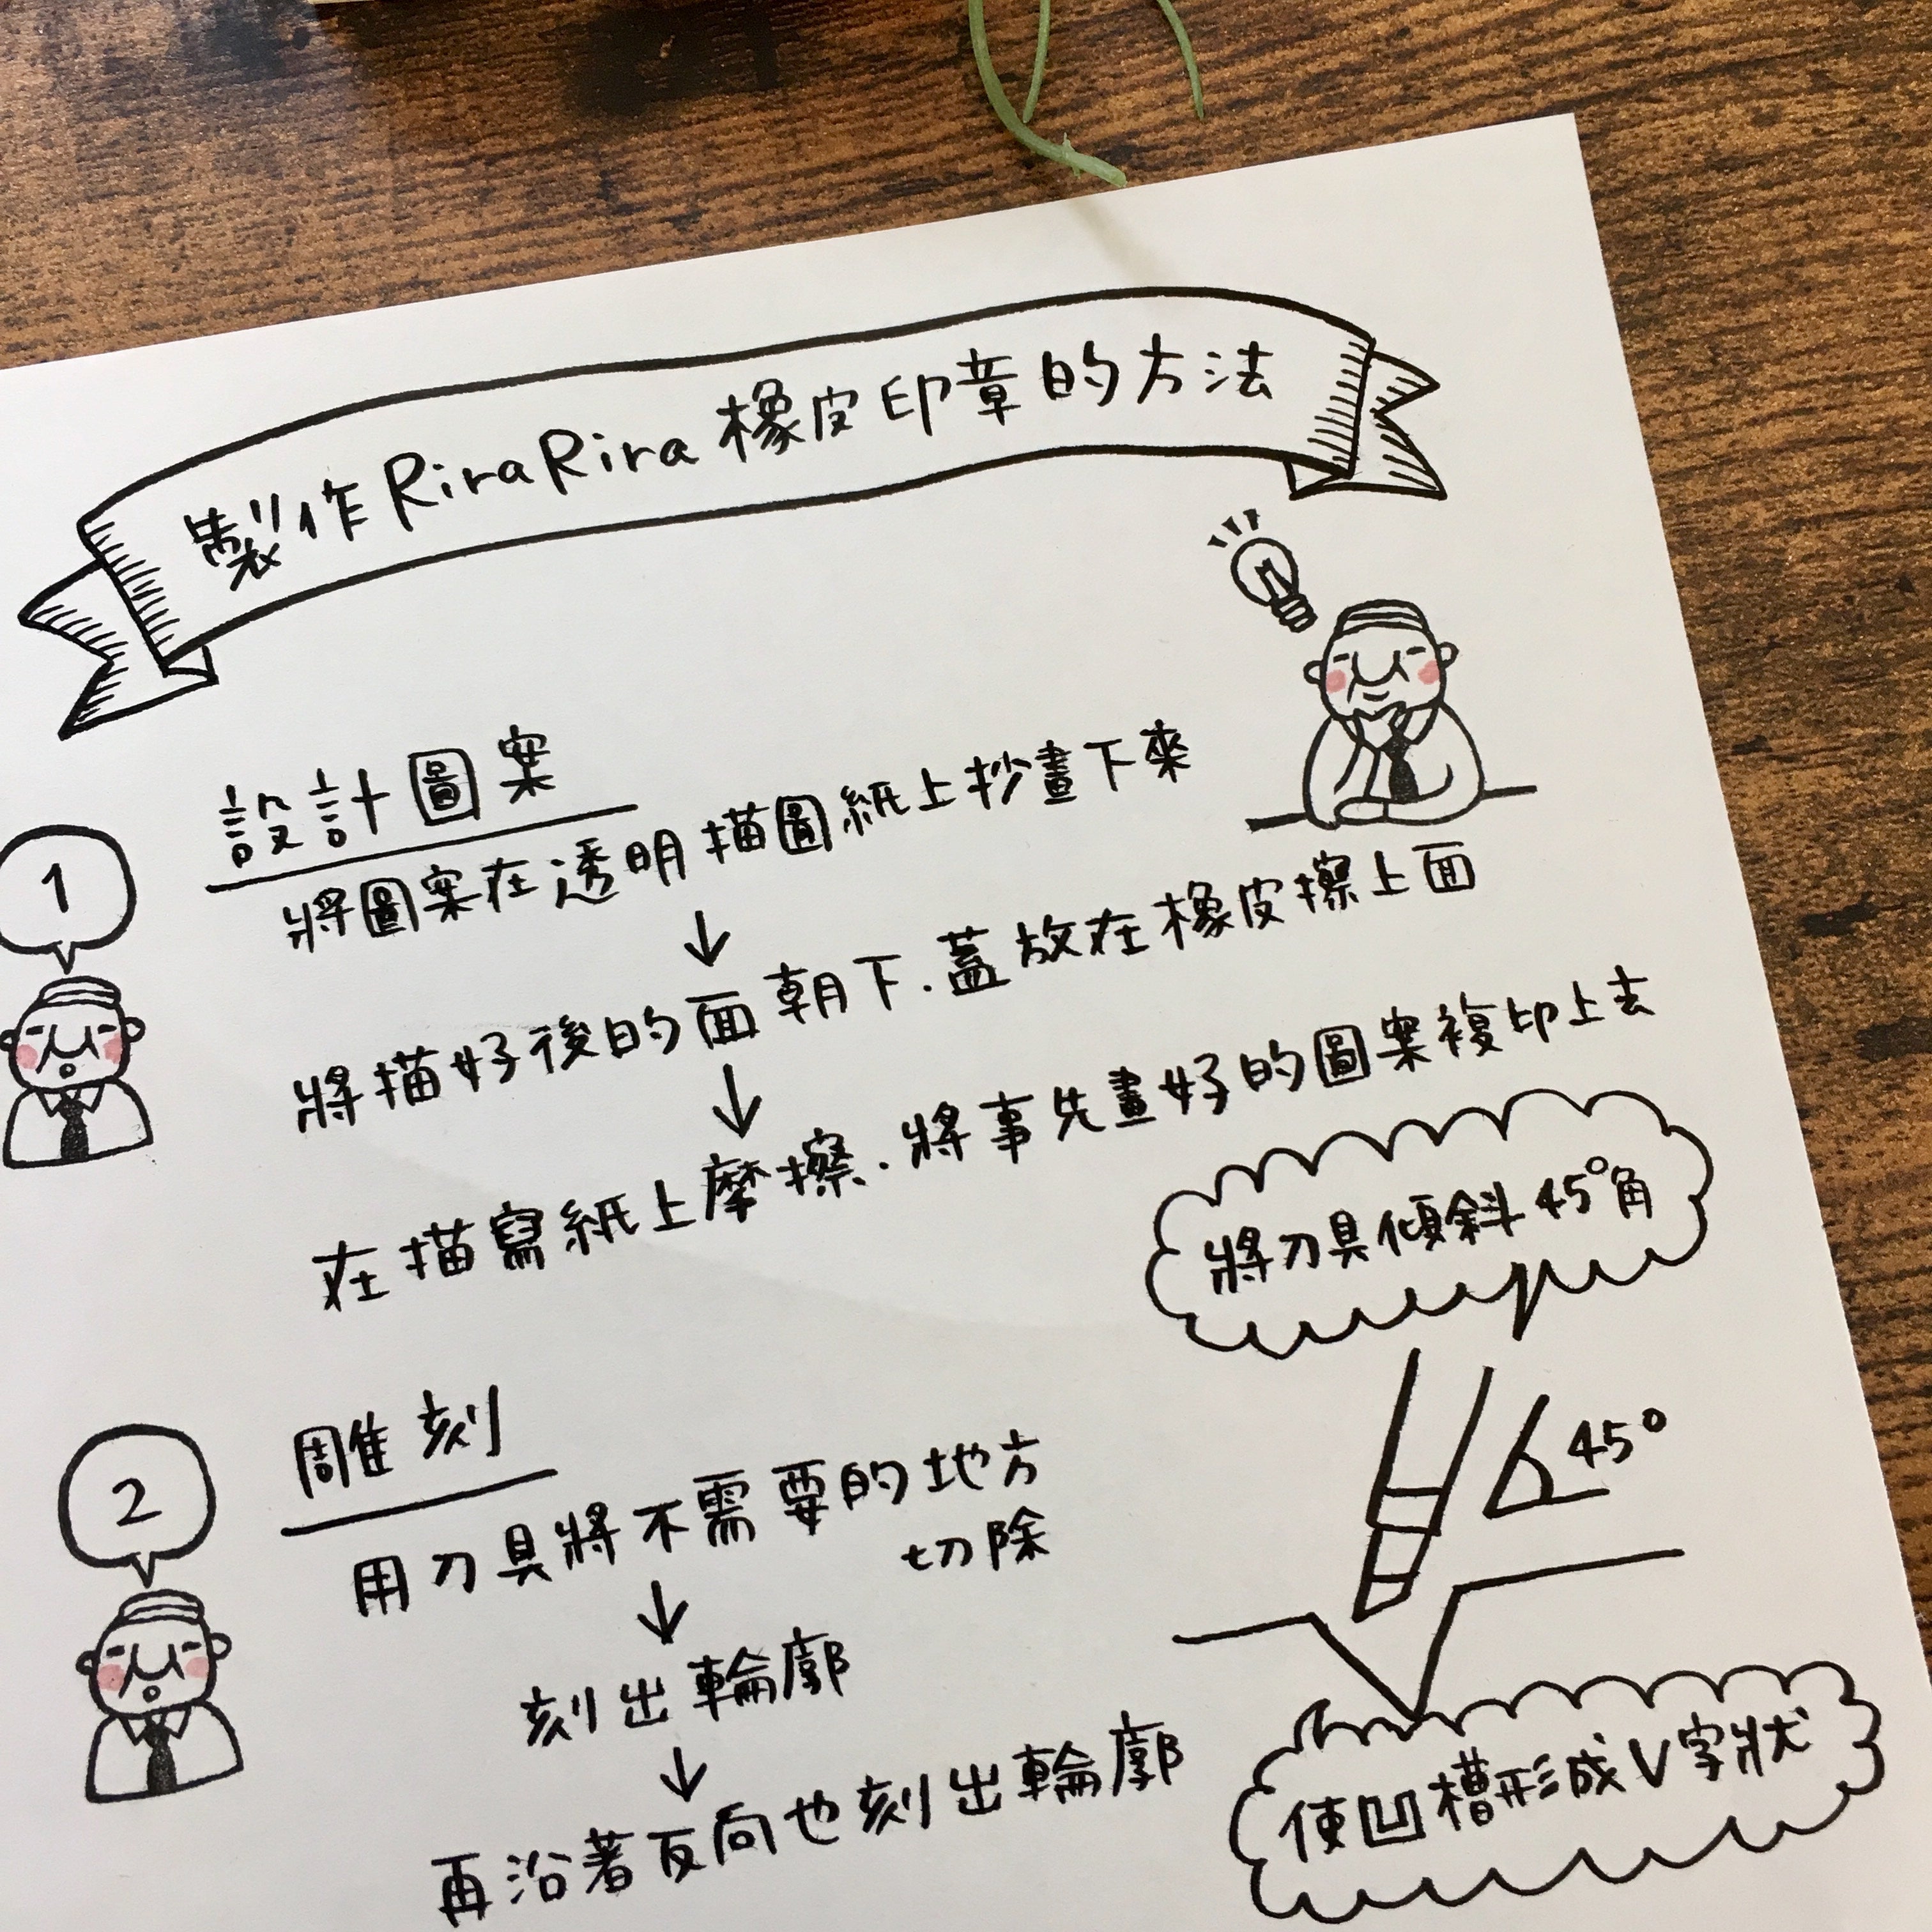 製作RiraRira橡皮印章的方法
1
設計圖案
將圖案在透明描圖紙上抄畫下來
↓
將描好後的面朝下.蓋放在橡皮擦上面
↓
在描寫紙上摩擦.將事先畫好的圖案複印上去
將刀具傾斜45°角
45°
2
雕刻
用刀具將不需要的地方
切除
↓
刻出輪廓
↓
再沿著反向也刻出輪廓
使凹槽形成V字狀